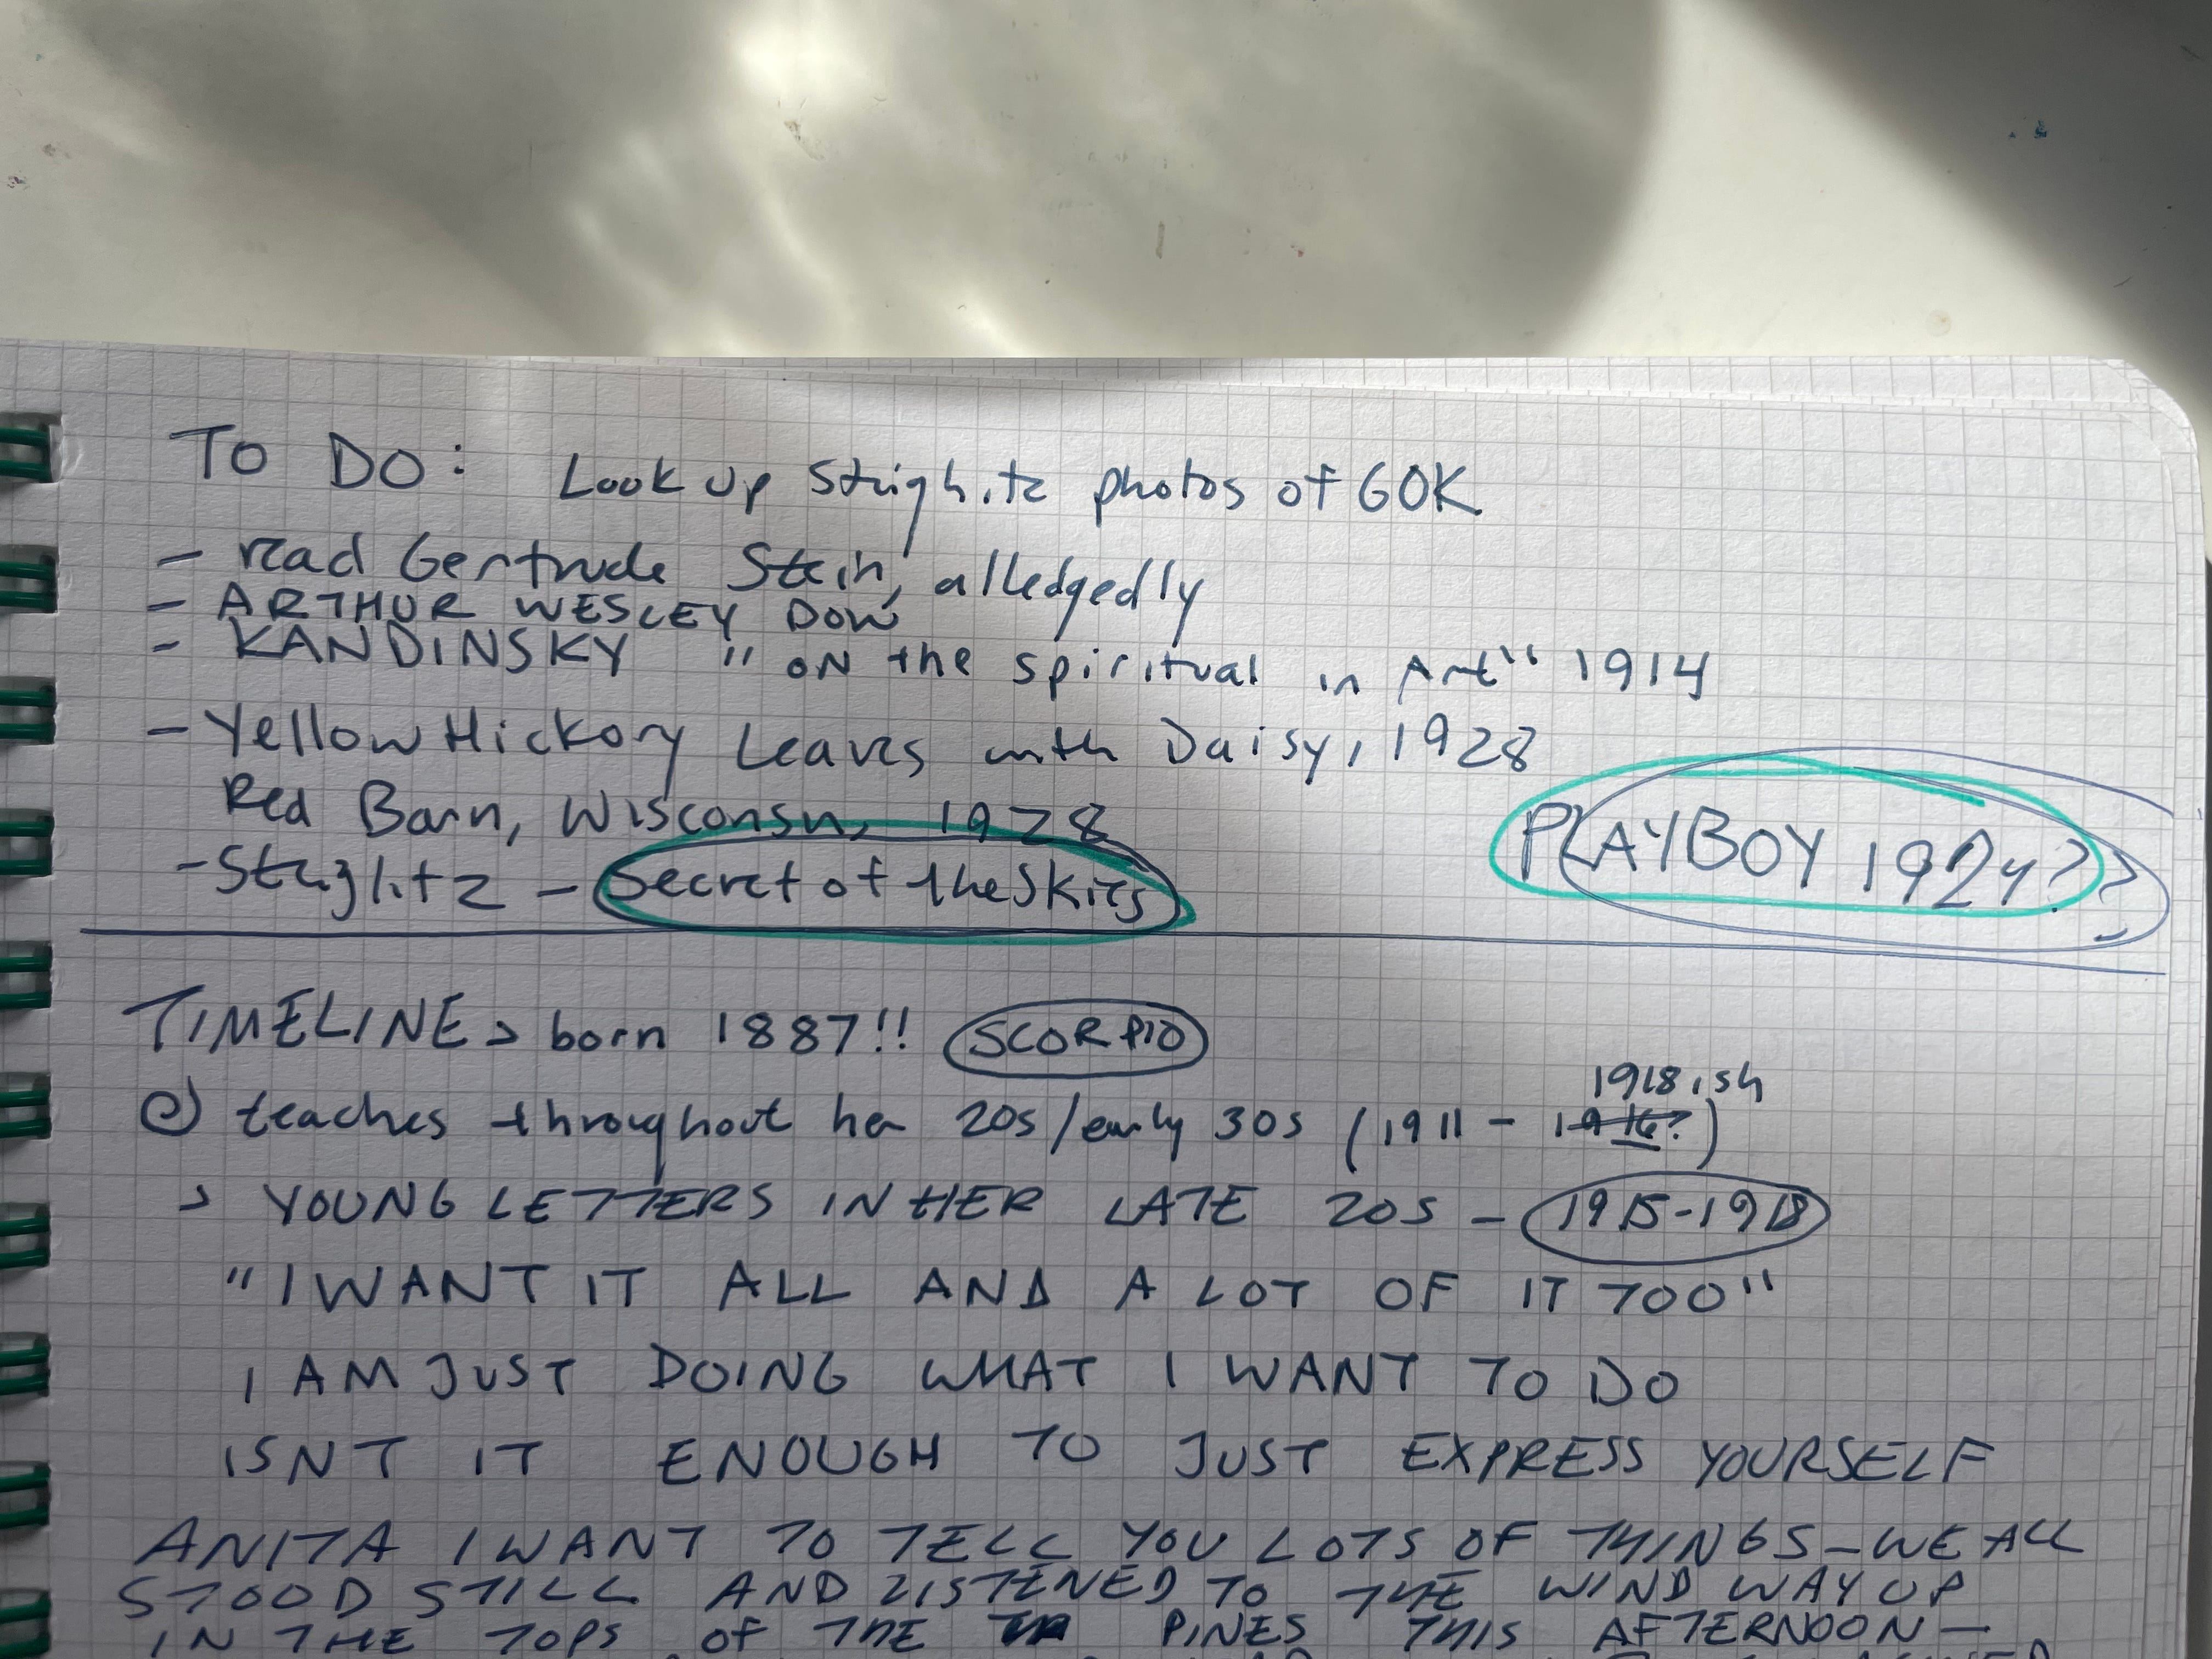 TO DO: Look up Steighitz photos of GOK
- read Gertrude Stein, alledgedly
- ARTHUR WESLEY DOW
- KANDINSKY "ON the spiritual in Art" 1914
- Yellow Hickory Leaves with Daisy, 1928
Red Barn, Wisconsin, 1928
PLAYBOY 1924??
- Steiglitz - Secret of the Skies
TIMELINE > born 1887!! SCORPIO
1918ish
teaches throughout her 20s/early 30s (1911 - 1916?)
> YOUNG LETTERS IN HER LATE 20S - 1915-1918
"I WANT IT ALL AND A LOT OF IT TOO"
I AM JUST DOING WHAT I WANT TO DO
ISNT IT ENOUGH TO JUST EXPRESS YOURSELF
ANITA I WANT TO TELL YOU LOTS OF THINGS - WE ALL
STOOD STILL AND LISTENED TO THE WIND WAY UP
IN THE TOPS OF THE PINES THIS AFTERNOON -